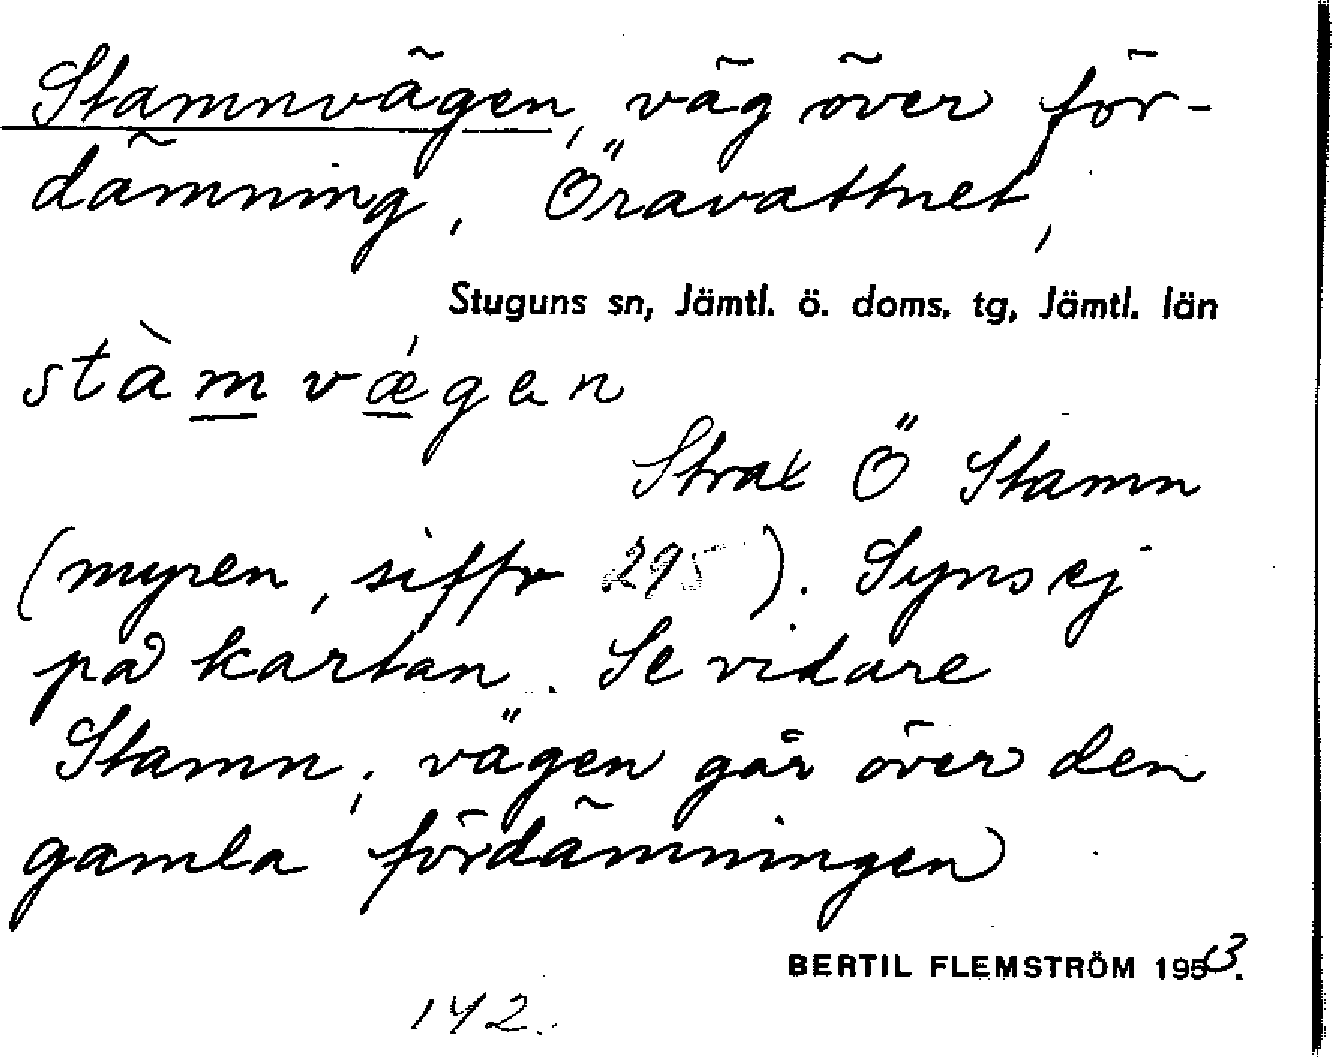 Stamnvägen, väg över för-
dämning, Öravattnet,
Stuguns sn, Jämtl. ö. doms. tg, Jämtl. län
stàmvǽgen
Strax Ö Stamn
(myren, siffr 295). Syns ej
på kartan. Se vidare
Stamn; vägen går över den
gamla fördämningen
BERTIL FLEMSTRÖM 1953.
142.